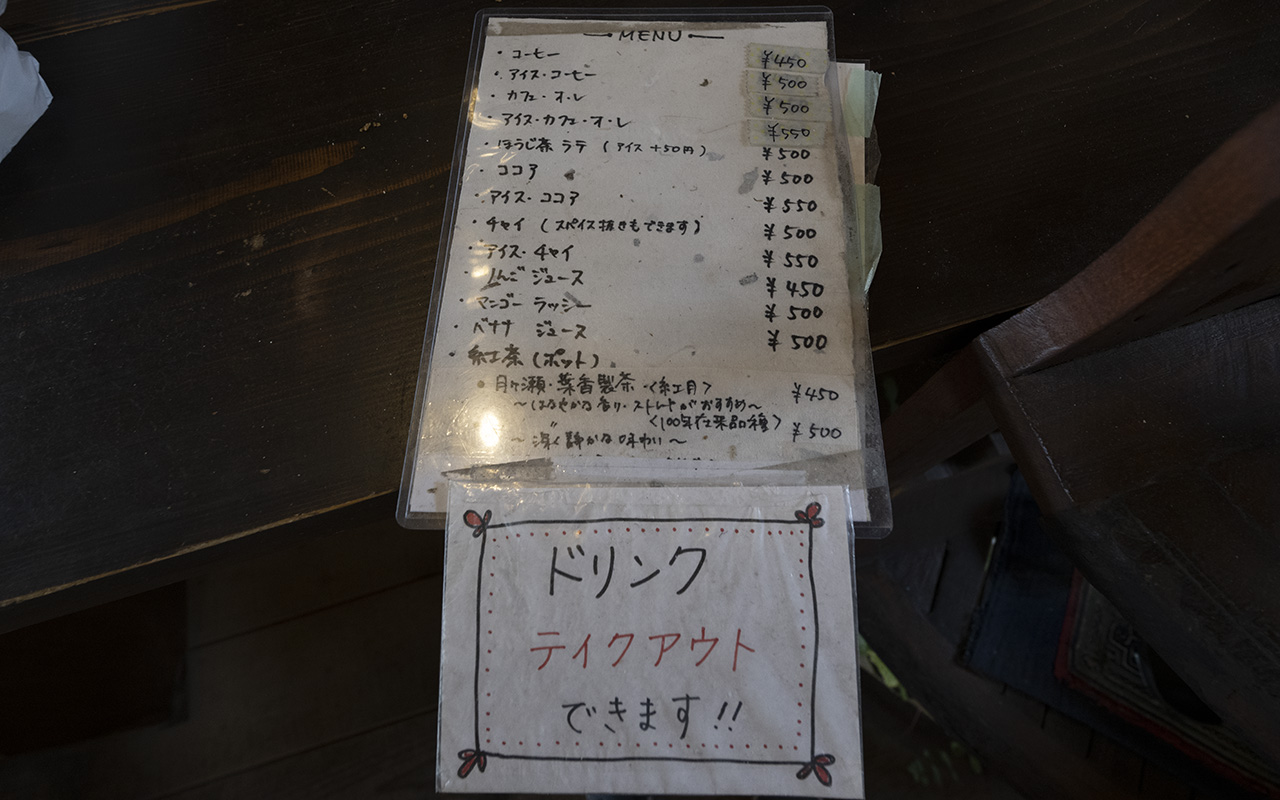 MENU
・コーヒー ¥450
・アイス・コーヒー ¥500
・カフェ・オ・レ ¥500
・アイス・カフェ・オ・レ ¥550
・ほうじ茶 ラテ (アイス +50円) ¥500
・ココア ¥500
・アイス・ココア ¥550
・チャイ (スパイス抜きもできます) ¥500
・アイス・チャイ ¥550
・りんご ジュース ¥450
・マンゴー ラッシー ¥500
・バナナ ジュース ¥500
・紅茶 (ポット)
・月ヶ瀬・葉香製茶 〈紅月〉 ¥450
～はなやかな香り・ストレートがおすすめ～
〃 〈100年在来品種〉 ¥500
～深く静かな味わい～
ドリンク
テイクアウト
できます!!